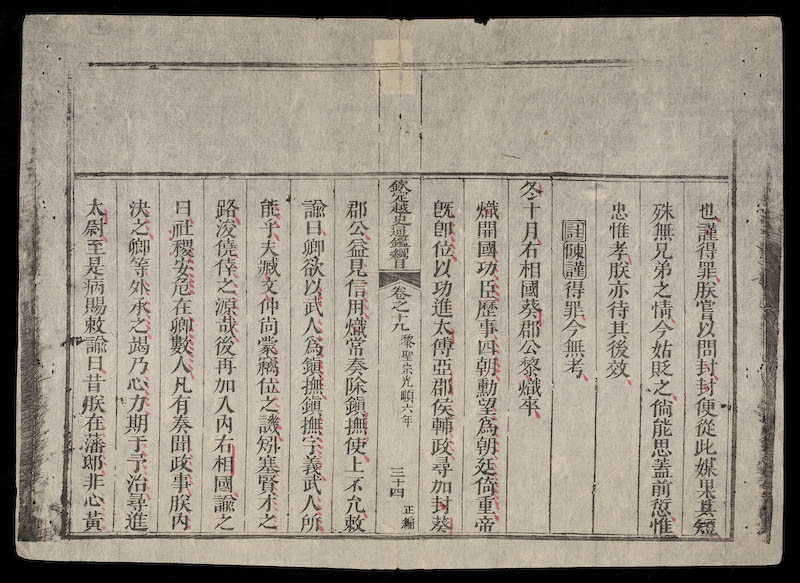 也謹得罪朕嘗以問封封便從此媒果其短
殊無兄弟之情今姑貶之倘能思蓋前愆惟
忠惟孝朕亦待其後效
註陳謹得罪今無考
冬十月右相國葵郡公黎熾卒
熾開國功臣歷事四朝勳望為朝廷倚重帝
旣卽位以功進太傅亞郡侯輔政尋加封葵
欽定越史通鑑綱目 卷之十九 黎聖宗光順六年 三十四 正編
郡公益見信用熾常奏除鎭撫使上不允敕
諭曰卿欲以武人為鎭撫鎭撫字義武人所
能乎夫臧文仲尚蒙竊位之譏矧塞賢才之
路浚僥倖之源哉後再加入內右相國諭之
曰社稷安危在卿數人凡有奏聞政事朕內
決之卿等外承之竭乃心力期于予治尋進
太尉至是病賜敕諭曰昔朕在藩邸非心黃